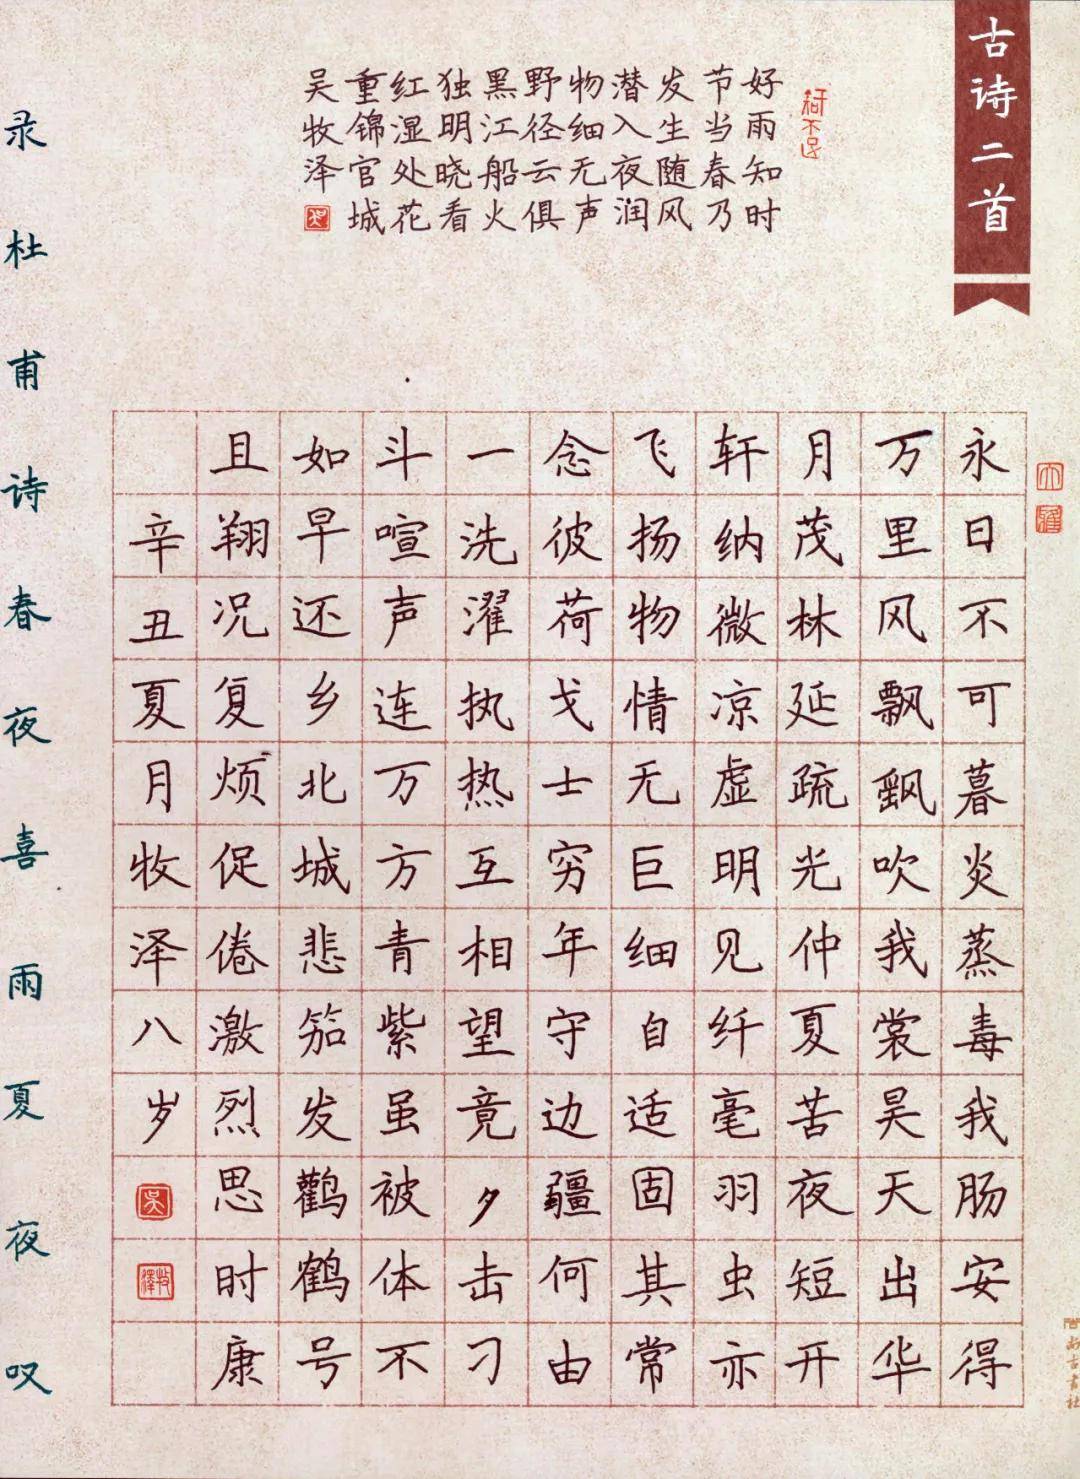 古诗二首
好雨知时
节当春乃
发生随风
潜入夜润
物细无声
野径云俱
黑江船火
独明晓看
红湿处花
重锦官城
吴牧泽
吳
永日不可暮炎蒸毒我肠安得
万里风飘飖吹我裳昊天出华
月茂林延疏光仲夏苦夜短开
轩纳微凉虚明见纤毫羽虫亦
飞扬物情无巨细自适固其常
念彼荷戈士穷年守边疆何由
一洗濯执热互相望竟夕击刁
斗喧声连万方青紫虽被体不
如早还乡北城悲笳发鹳鹤号
且翔况复烦促倦激烈思时康
辛丑夏月牧泽八岁
吳
牧澤
录杜甫诗春夜喜雨夏夜叹